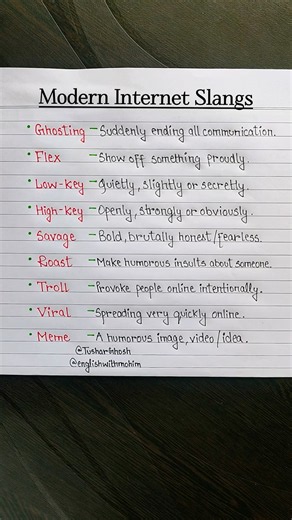 Modern Internet Slangs
• Ghosting – Suddenly ending all communication.
• Flex – Show off something proudly.
• Low-key – Quietly, slightly or secretly.
• High-key – Openly, strongly or obviously.
• Savage – Bold, brutally honest/fearless.
• Roast – Make humorous insults about someone.
• Troll – Provoke people online intentionally.
• Viral – Spreading very quickly online.
• Meme – A humorous image, video/idea.
@englishwithmohim